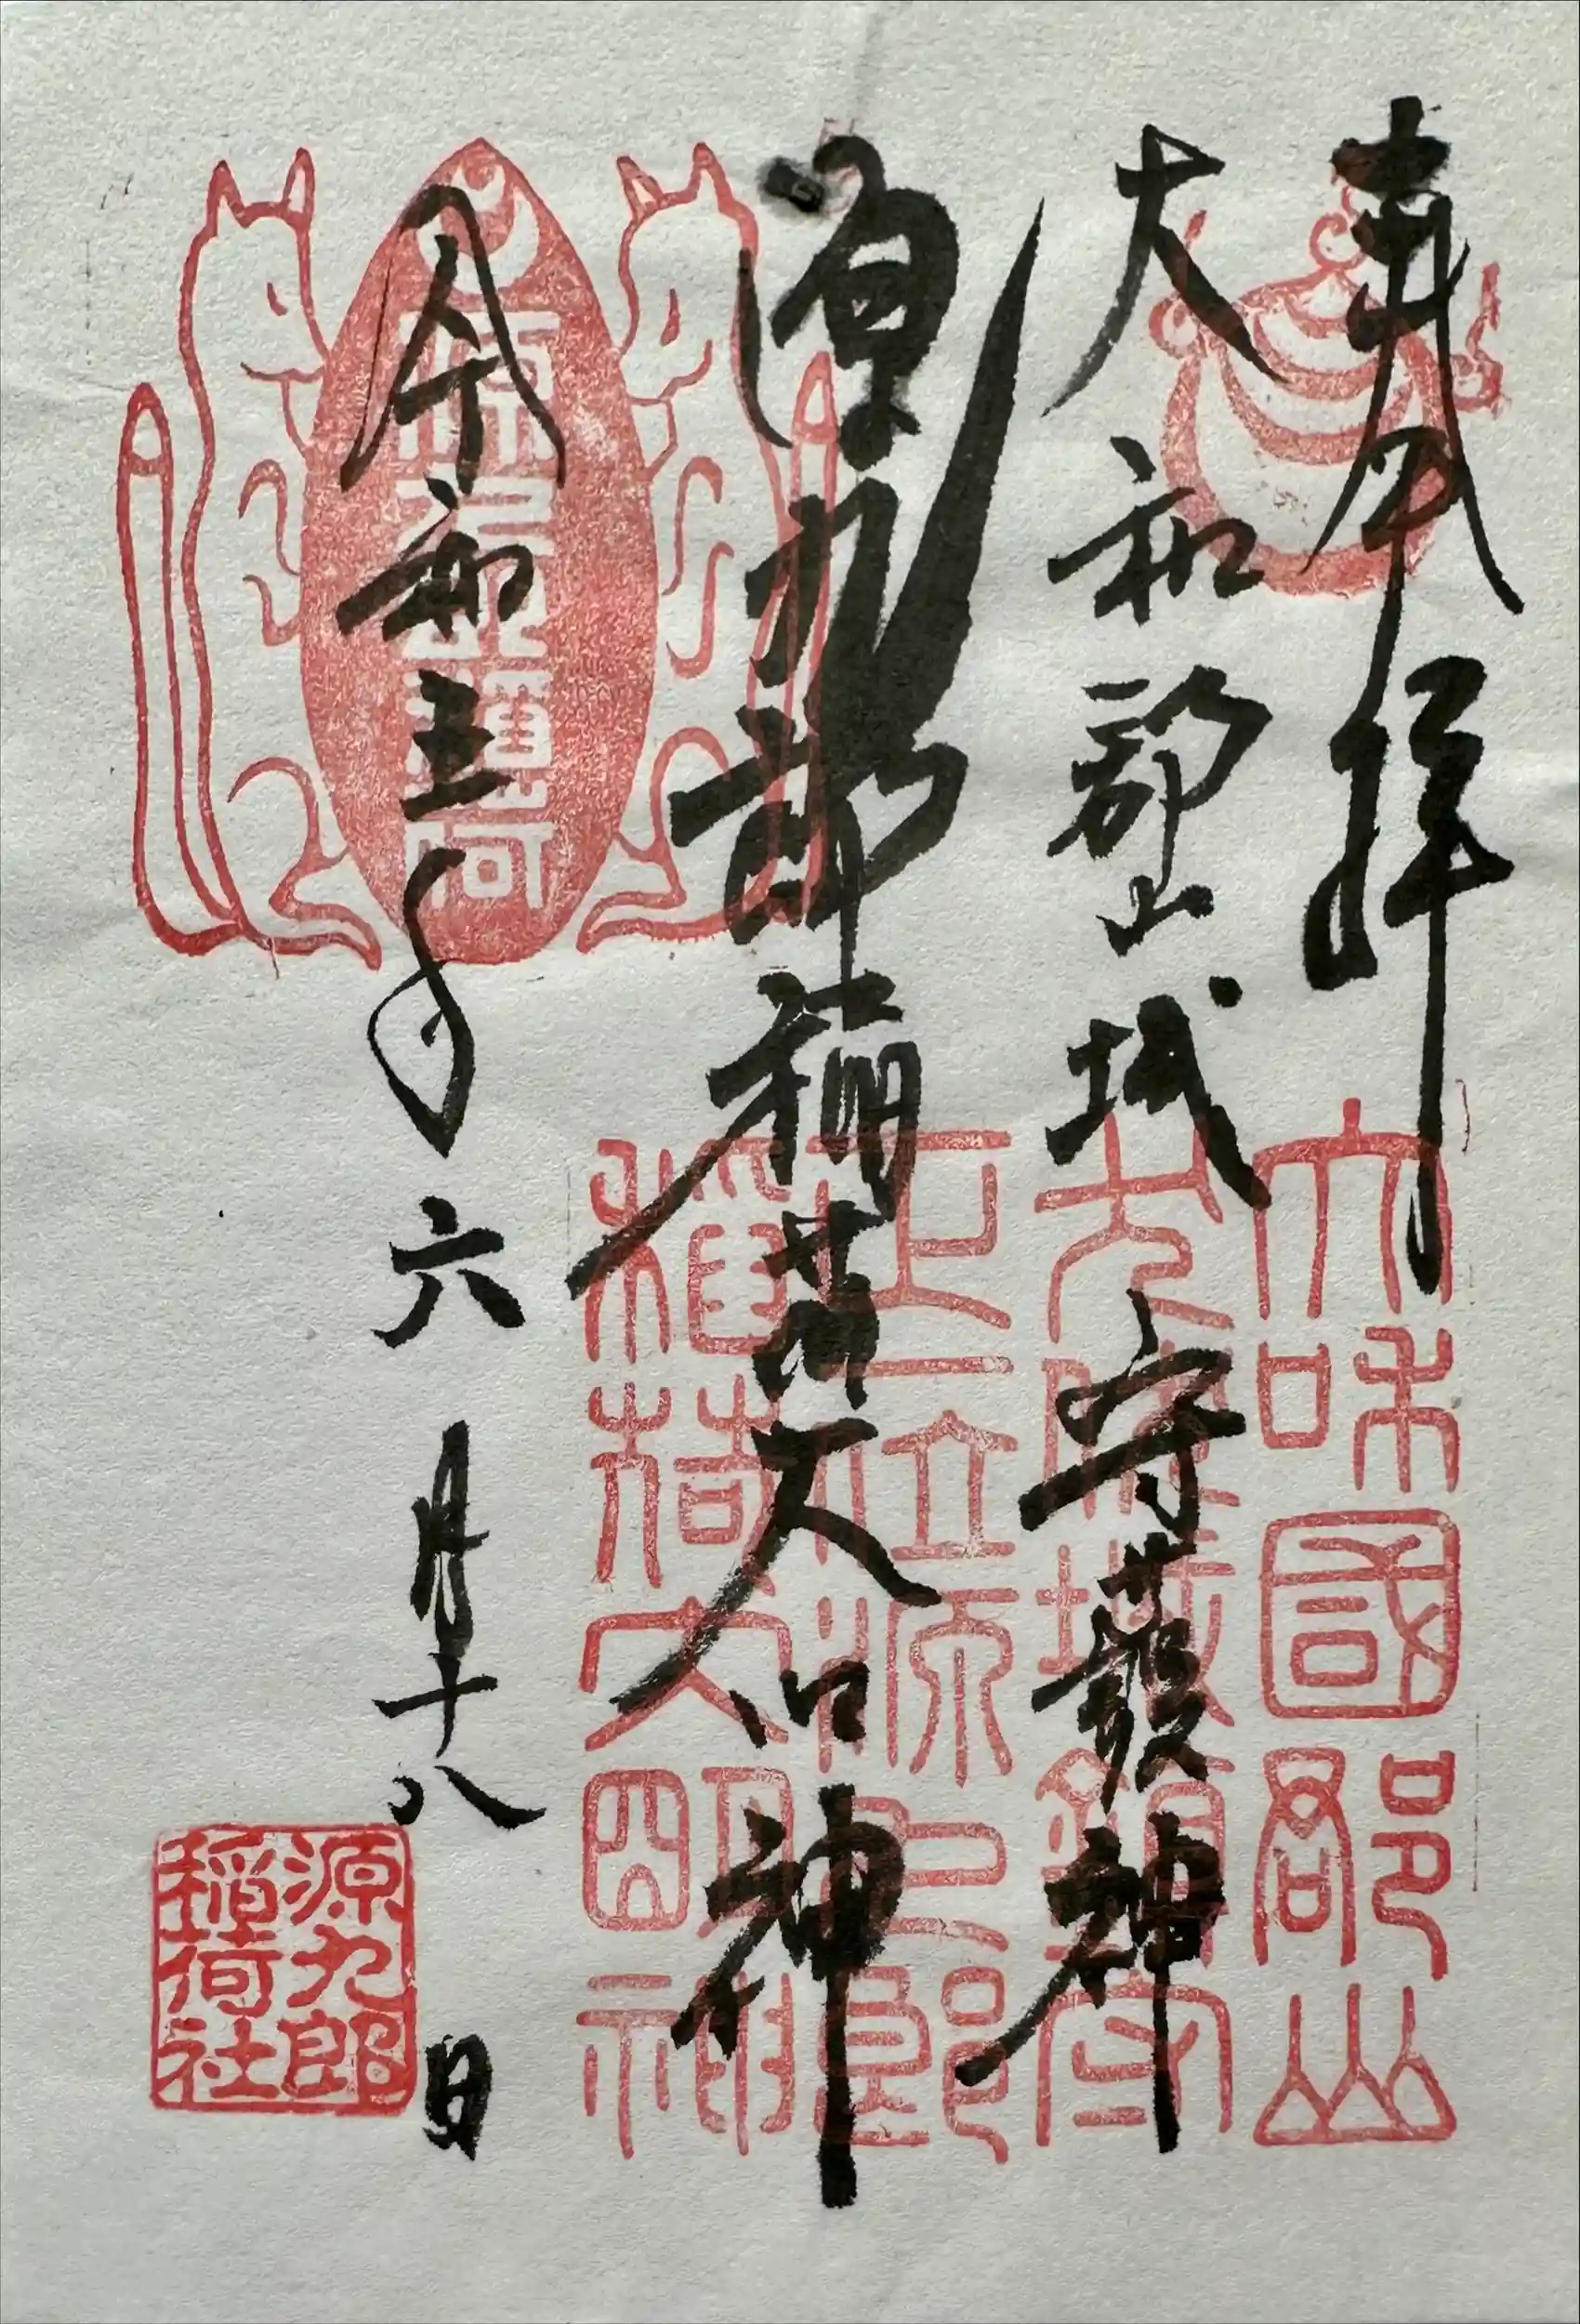 奉拝
大和郡山城 守護神
源九郎稲荷大明神
令和五年六月十八日
大和國郡山
城鎮守
正一位源九郎
稲荷大明神
稲荷
源九郎
稲荷社